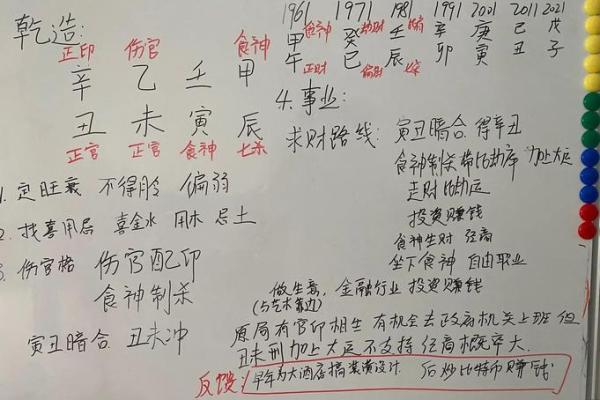 乾造:
正印 伤官 食神
辛 乙 壬 甲
丑 未 寅 辰
正官 正官 食神 七杀
1961 1971 1981 1991 2001 2011 2021
甲 癸 壬 辛 庚 己 戊
午 巳 辰 卯 寅 丑 子
食神 劫财
正财 偏财
1. 定旺衰 不得令 偏弱
2. 找喜用忌 喜金水 用木 忌土
3. 伤官格 伤官配印
食神制杀
寅丑暗合 丑未冲
4. 事业:
求财路线: 寅丑暗合 得辛丑
食神制杀 带比劫库 加上大运
走财 比劫运
投资赚钱
食神生财 经商
坐下食神 自由职业
做生意, 金融行业 投资赚钱
(与艺术靠边)
原局有官印相生 有机会去政府机关上班 但
丑未刑加上大运不支持 经商概率大.
反馈: 早年为大酒店搞装潢设计. 后炒比特币赚钱